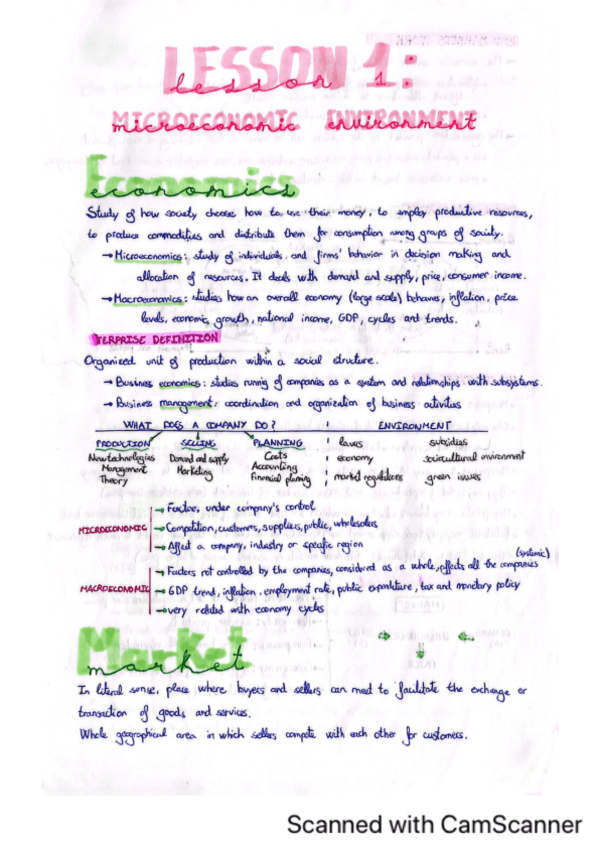 LESSON 1:
lesson 1
MICROECONOMIC ENVIRONMENT
Economics
economics
Study of how society choose how to use their money, to employ productive resources,
to produce commodities and distribute them for consumption among groups of society.
→ Microeconomics: study of individuals and firms' behavior in decision making and
allocation of resources. It deals with demand and supply, price, consumer income.
→ Macroeconomics: studies how an overall economy (large scale) behaves, inflation, price
levels, economic growth, national income, GDP, cycles and trends.
TERPRISE DEFINITION
Organized unit of production within a social structure.
→ Business economics: studies runnig of companies as a system and relationships with subsystems.
→ Business management: coordination and organization of business activities
WHAT DOES A COMPANY DO? ENVIRONMENT
PRODUCTION SELLING PLANNING laws subsidies
New technologies Demand and supply Costs economy sociocultural environment
Management Marketing Accounting market regulations green issues
Theory Financial planning
MICROECONOMIC
→ Factors, under company's control
→ Competition, customers, suppliers, public, wholesalers
→ Affect a company, industry or specific region
MACROECONOMIC
(systemic)
→ Factors not controlled by the companies, considered as a whole, affects all the companies
→ GDP trend, inflation, employment rate, public expenditure, tax and monetary policy
→ very related with economy cycles
Market
market
In literal sense, place where buyers and sellers can meet to facilitate the exchange or
transaction of goods and services.
Whole geographical area in which sellers compete with each other for customers.
Scanned with CamScanner